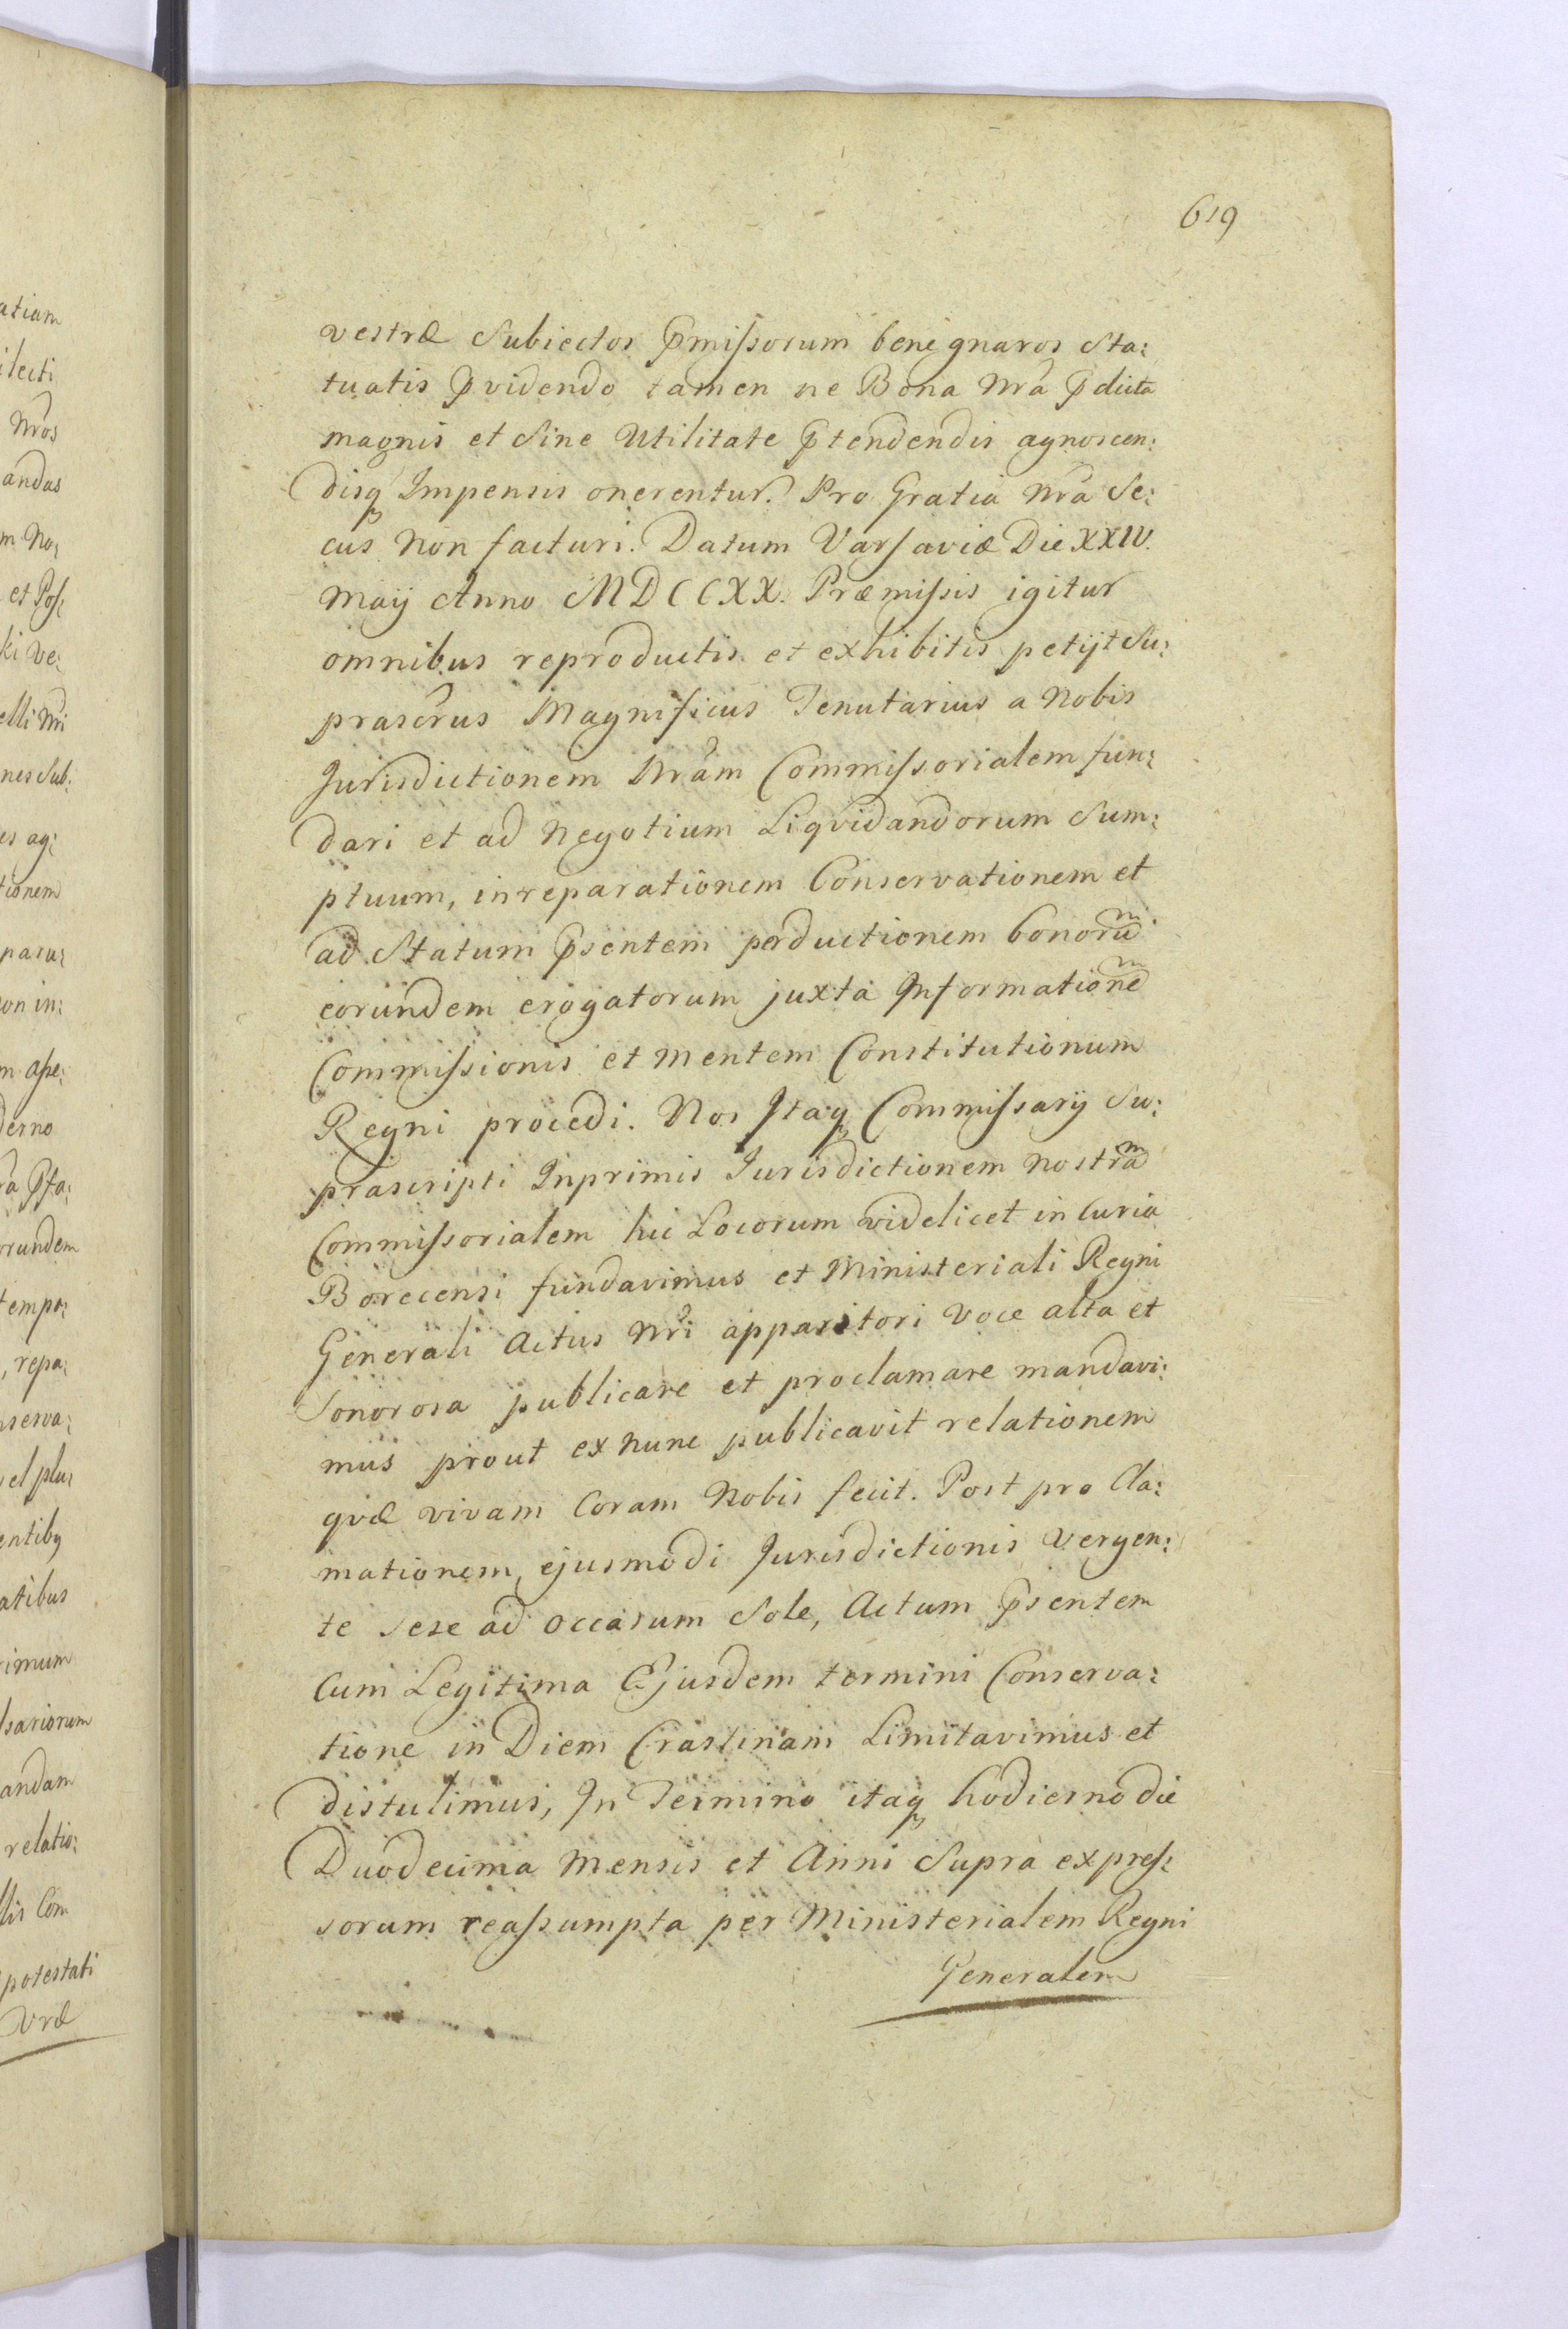 619
vestræ Subiectos Pmissorum bene gnaros Sta:
tuatis Pvidendo tamen ne Bona Nrã Pdicta
magnis et Sine Utilitate Ptendendis agnoscen:
disq Impensis onerentur. Pro Gratia Nrã Se:
cus Non facturi. Datum Varsaviæ Die XXIV.
Maÿ Anno MDCCXX. Præmissis igitur
omnibus reproductis et exhibitis petijt Su:
prascrus Magnificus Tenutarius a Nobis
Jurisdictionem Nrãm Commissorialem fun:
dari et ad Negotium Liqvidandorum Sum:
ptuum, in reparationem Conservationem et
ad Statum Psentem perductionem bonorũ
eorundem erogatorum juxta Informationẽ
Commissionis et mentem Constitutionum
Regni procedi. Nos Itaq Commissarÿ Su:
prascripti Inprimis Jurisdictionem nostrã
Commissorialem hic Locorum videlicet in Curia
Borecensi fundavimus et Ministeriali Regni
Generali Actus Nri apparitori Voce alta et
Sonorosa publicare et proclamare mandavi:
mus prout ex nunc publicavit relationem
qvæ vivam Coram Nobis fecit. Post pro Cla:
mationem, ejusmodi Jurisdictionis Vergen:
te sese ad occasum Sole, Actum Psentem
Cum Legitima Ejusdem termini Conserva:
tione in Diem Crastinam Limitavimus et
distulimus, In Termino itaq hodierno die
Duodecima Mensis et Anni Supra expres:
sorum reassumpta per Ministerialem Regni
Generalem
atiam
ilecti
Nros
andas
m No:
et Pos:
ki Ve:
elli Nri
nes Sub:
es ag:
tionem
paru:
on in:
m ape:
derno
rã Pfa:
orundem
tempo:
, repa:
nserva:
vel plu:
entibq
atibus
rimum
ssariorum
andam
relatio:
llis Com
potestati
Vræ